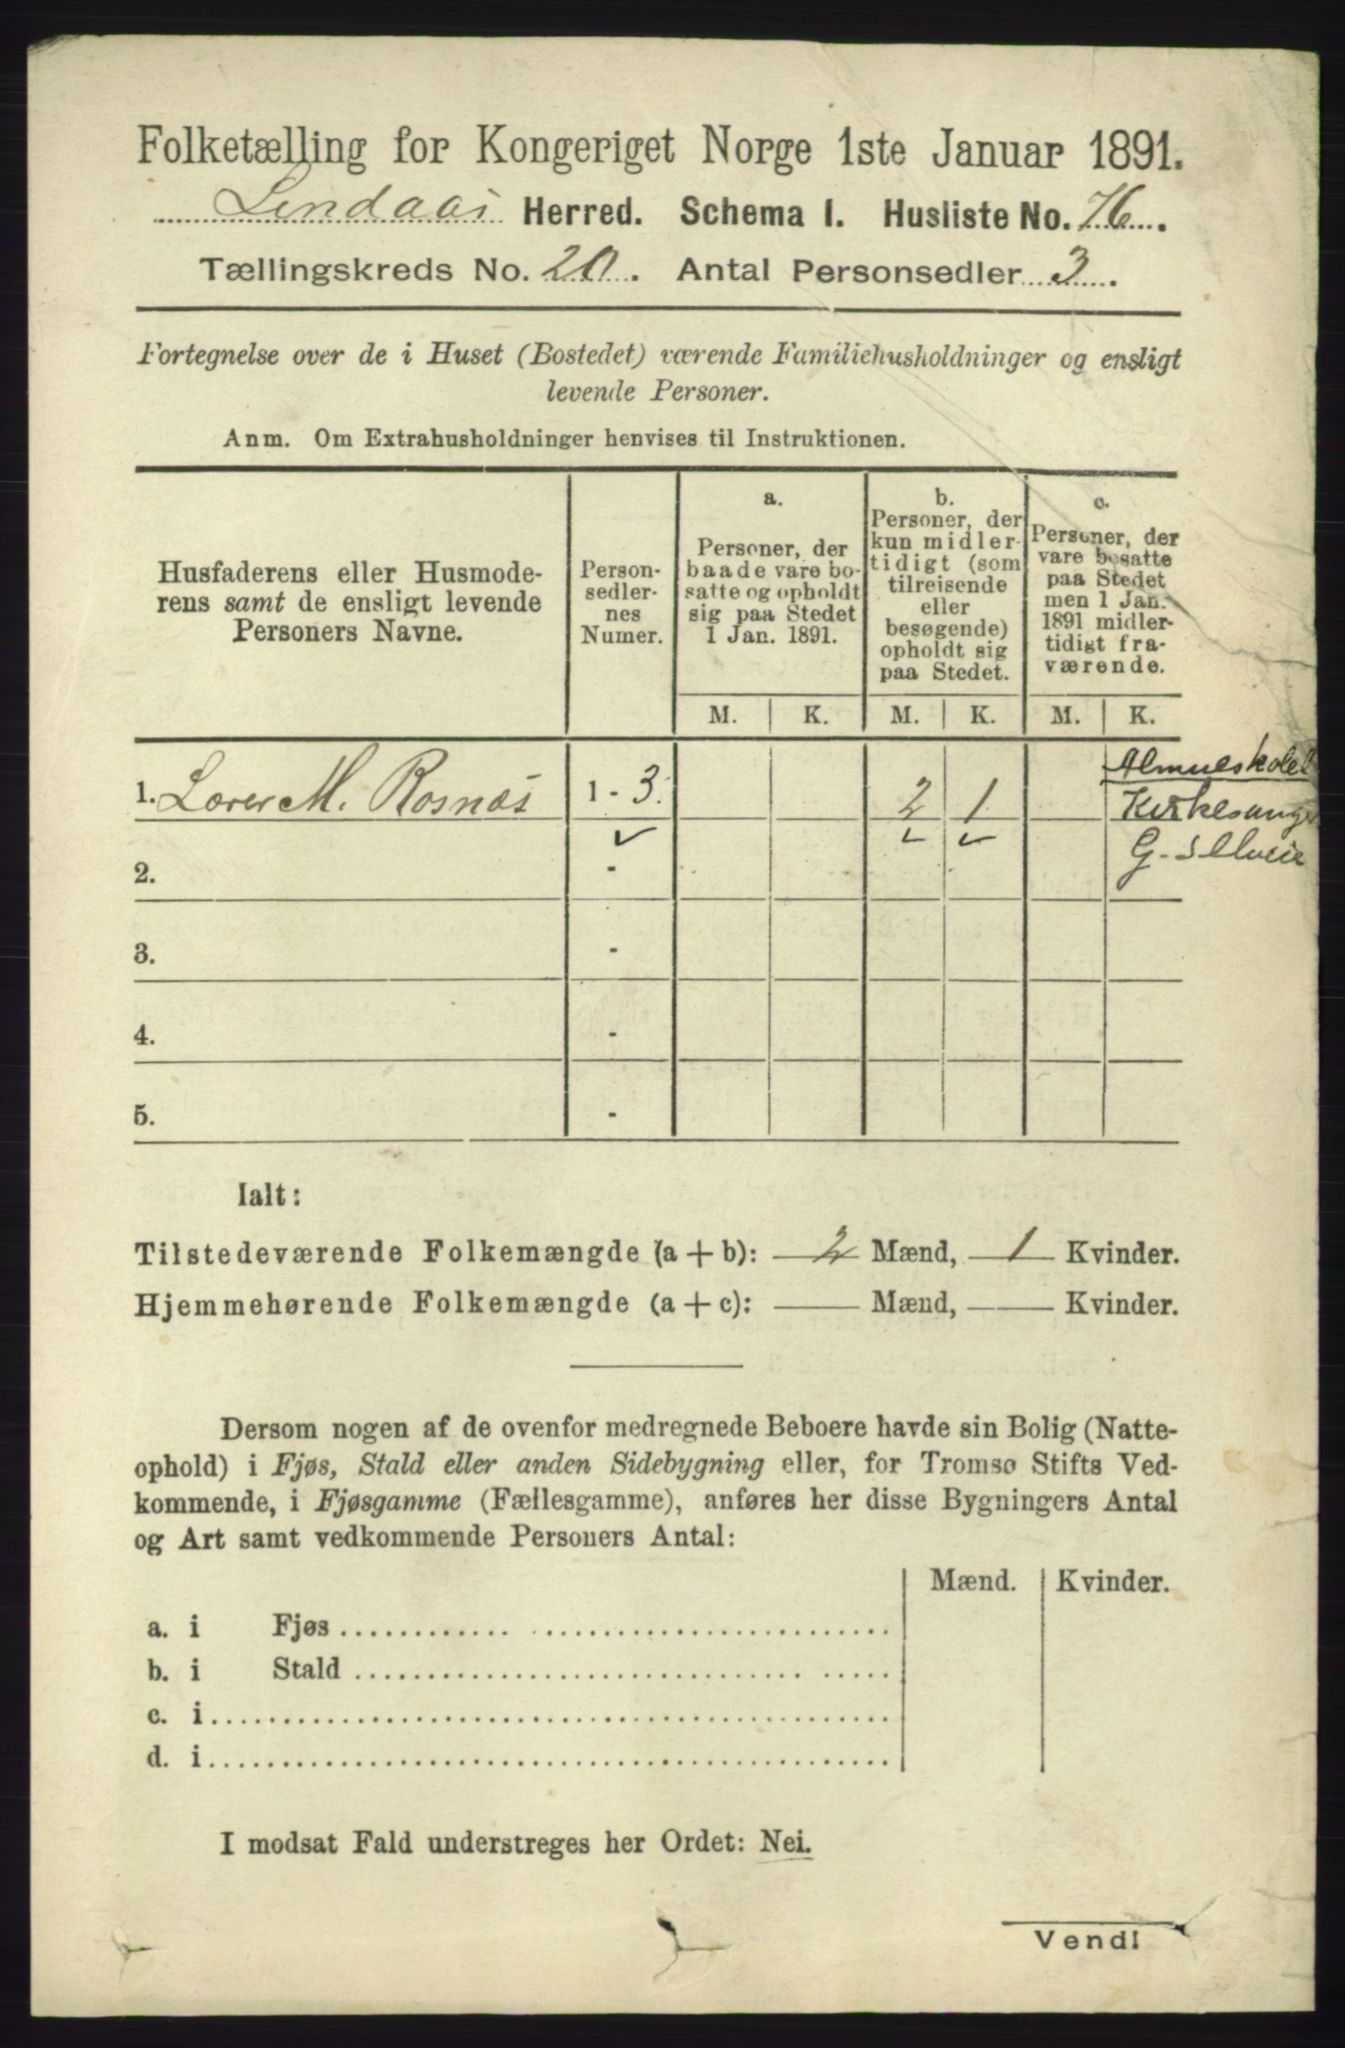 Folketælling for Kongeriget Norge 1ste Januar 1891.
Lindaas Herred. Schema I. Husliste No. 76.
Tællingskreds No. 20. Antal Personsedler 3.
Fortegnelse over de i Huset (Bostedet) værende Familiehusholdninger og ensligt
levende Personer.
Anm. Om Extrahusholdninger henvises til Instruktionen.
Husfaderens eller Husmode-
rens samt de ensligt levende
Personers Navne.
Person-
sedler-
nes
Numer.
a.
Personer, der
baade vare bo-
satte og opholdt
sig paa Stedet
1 Jan. 1891.
b.
Personer, der
kun midler-
tidigt (som
tilreisende
eller
besøgende)
opholdt sig
paa Stedet.
c.
Personer, der
vare bosatte
paa Stedet
men 1 Jan.
1891 midler-
tidigt fra-
værende.
M. K. M. K. M. K.
Almueskolel
1. Lærer M. Rosnæs 1 - 3. 2 1 Kirkesanger
2. -
3. -
4. -
5. -
Ialt:
Tilstedeværende Folkemængde (a + b): 2 Mænd, 1 Kvinder.
Hjemmehørende Folkemængde (a + c): — Mænd, — Kvinder.
Dersom nogen af de ovenfor medregnede Beboere havde sin Bolig (Natte-
ophold) i Fjøs, Stald eller anden Sidebygning eller, for Tromsø Stifts Ved-
kommende, i Fjøsgamme (Fællesgamme), anføres her disse Bygningers Antal
og Art samt vedkommende Personers Antal:
Mænd. Kvinder.
a. i Fjøs
b. i Stald
c. i
d. i
I modsat Fald understreges her Ordet: Nei.
Vend!